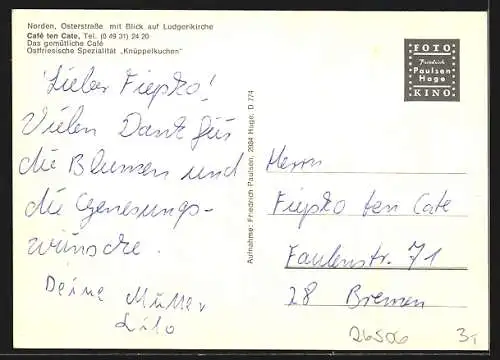 Norden, Osterstraße mit Blick auf Ludgerikirche
Café ten Cate, Tel. (0 49 31) 24 20
Das gemütliche Café
Ostfriesische Spezialität „Knüppelkuchen"
Lieber Fiepko!
Vielen Dank für
die Blumen und
die Genesungs-
wünsche.
Deine Mutter
Lilo
Aufnahme: Friedrich Paulsen, 2984 Hage, D 774
FOTO
Friedrich
Paulsen
Hage
KINO
Herrn
Fiepko ten Cate
Faulenstr. 71
28 Bremen
26506
3,-